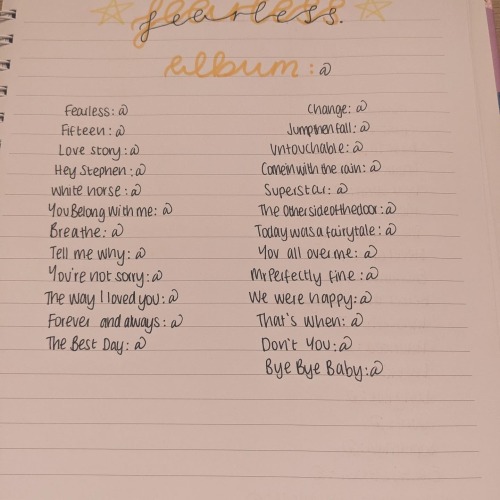 fearless.
album: @
Fearless: @
Fifteen: @
Love story: @
Hey Stephen: @
white horse: @
You Belong With me: @
Breathe: @
Tell me why: @
You're not sorry: @
The way I loved you: @
Forever and always: @
The Best Day: @
Change: @
Jump then fall: @
Untouchable: @
Come in with the rain: @
Superstar: @
The Other side of the door: @
Today was a fairytale: @
You all over me: @
Mr Perfectly fine: @
We were happy: @
That's When: @
Don't You: @
Bye Bye Baby: @